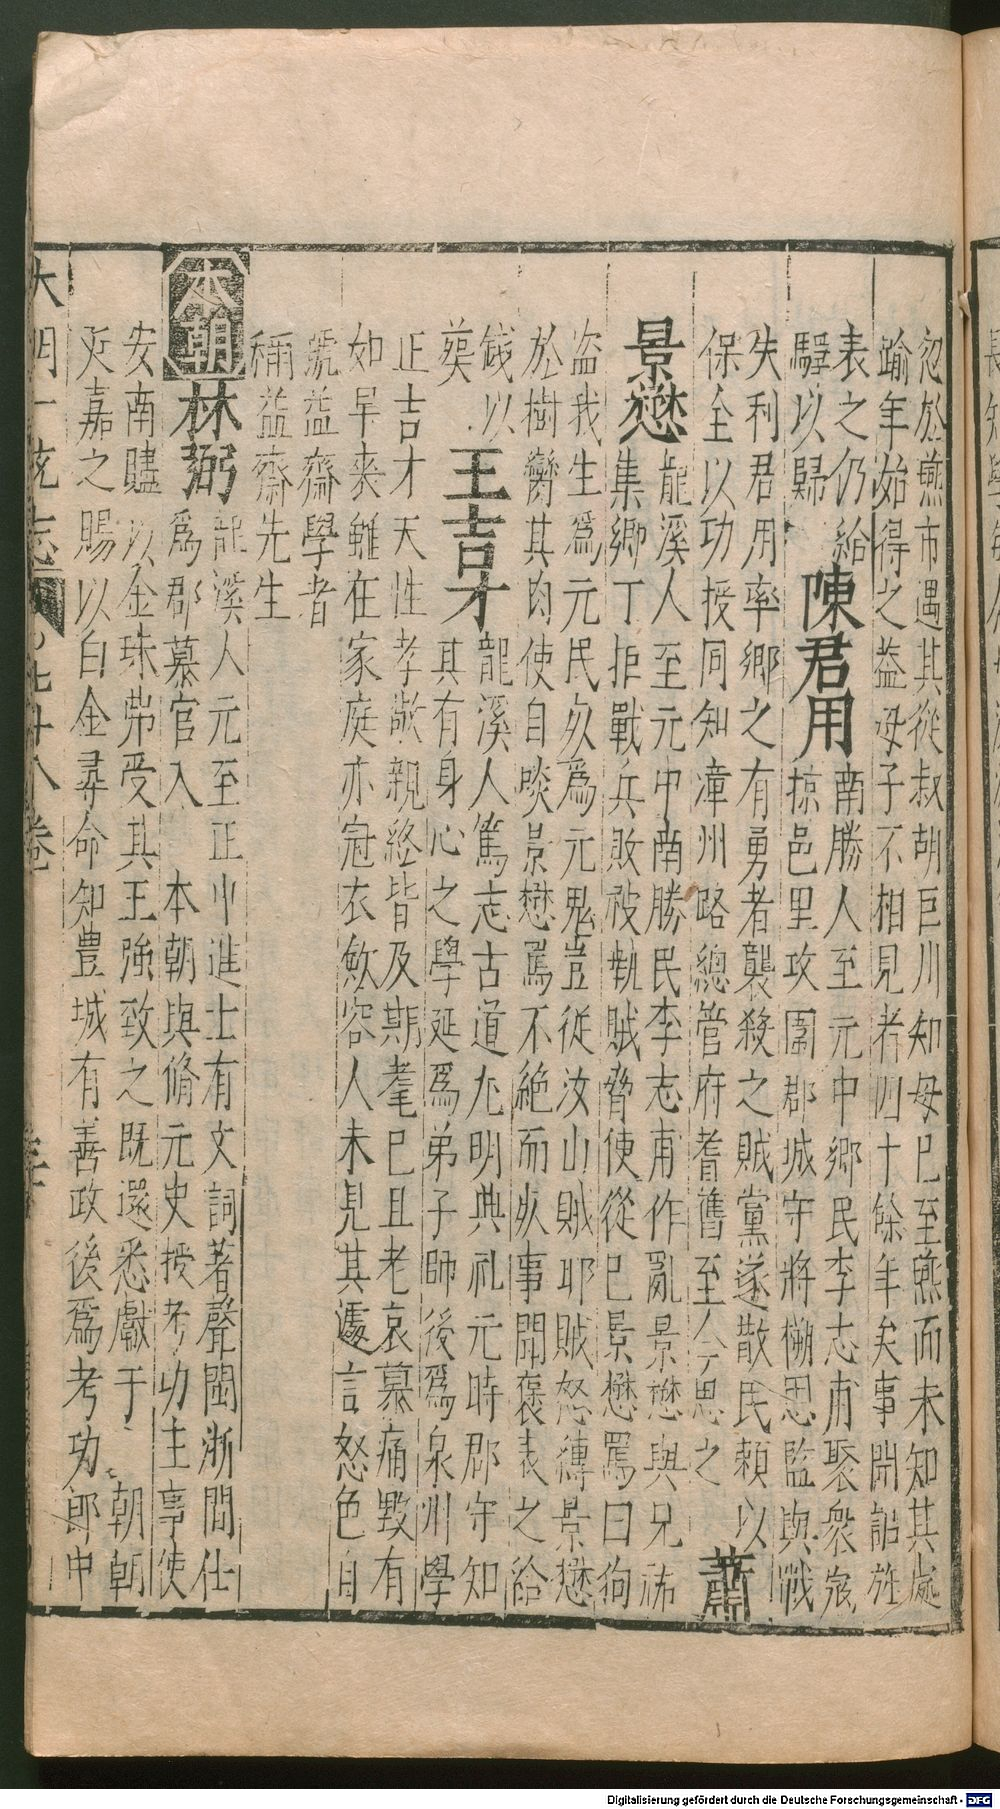 忽於燕市遇其從叔胡巨川知母已至燕而未知其處
踰年始得之葢母子不相見者四十餘年矣事聞詔旌
表之仍給
驛以歸
陳君用
南勝人至元中鄉民李志甫聚衆宼
掠邑里攻圍郡城守將搠思監與戰
失利君用率鄉之有勇者襲殺之賊黨遂散民頼以
保全以功授同知漳州路總管府耆舊至今思之
蕭
景懋
龍溪人至元中南勝民李志甫作亂景懋與兄祐
集鄉丁拒戰兵敗被執賊脅使從已景懋罵曰狗
盗我生爲元民死爲元鬼豈從汝山賊耶賊怒縛景懋
於樹臠其肉使自啖景懋罵不絶而死事聞褒表之給
錢以
葬
王吉才
龍溪人篤志古道尤明典礼元時郡守知
其有身心之學延爲弟子師後爲泉州學
正吉才天性孝敬親終皆及期耄已且老哀慕痛毀有
如早来雖在家庭亦冠衣斂容人未見其遽言怒色自
號益齋學者
稱益齋先生
本朝
林弼
龍溪人元至正中進士有文詞著聲閩浙間仕
爲郡幕官入　本朝與脩元史授考功主事使
安南贐以金珠弗受其王強致之既還悉獻于　朝朝
廷嘉之賜以白金尋命知豊城有善政後爲考功郎中
大明一統志
七十八卷